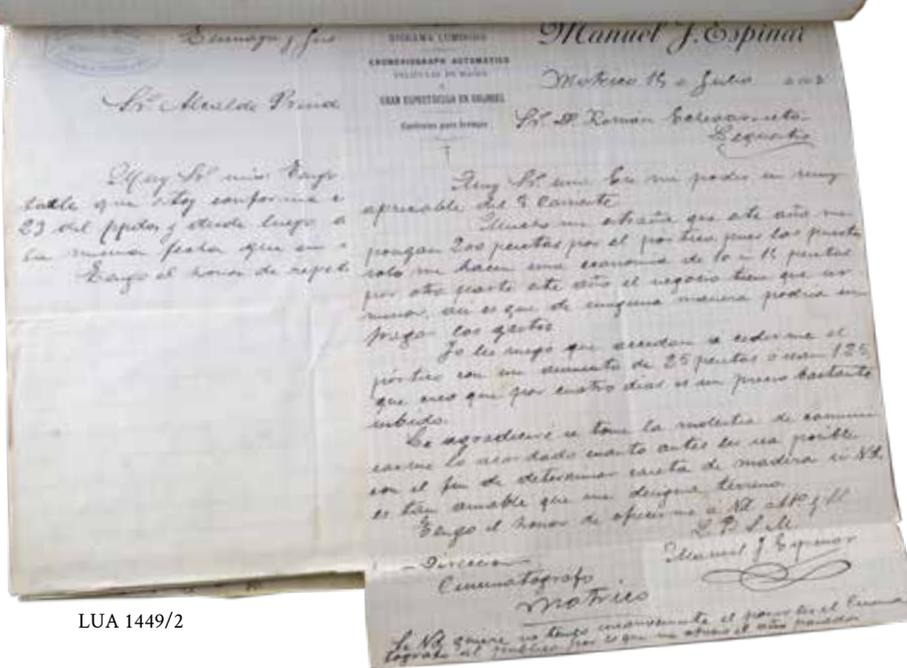 Sr. Alcalde Presid
Muy Sr. mio: Tengo
table que estoy conforme
23 del ppdo y desde luego a
la misma fecha que en
Tengo el honor de repet
DIORAMA LUMINOSO
CRONOFOGRAPH AUTOMÁTICO
PELICULAS DE MAGIA
Y
GRAN ESPECTÁCULO EN COLORES
Contratos para tiempo
Manuel J. Espinar
Motrico 15 de Julio
Sr. D. Roman Echevarrieta
Lequeitio
Muy Sr. mio: En mi poder su muy
apreciable del 8 Corriente
Mucho me estraña que este año me
pongan 200 pesetas por el portico, pues las puertas
solo me hacen una economia de 10 a 15 pesetas
por otra parte este año el negocio tiene que ser
menor, asi es que de ninguna manera podria
pagar los gastos
Yo les ruego que accedan a cederme el
pórtico con un aumento de 25 pesetas o sean 125
que creo que por cuatro dias es un precio bastante
subido.
Le agradeceré se tome la molestia de comuni
carme lo acordado cuanto antes les sea posible
con el fin de determinar caseta de madera si Vd.
es tan amable que me designa terreno.
Tengo el honor de ofrecerme a Vd. atto y
S. S. M.
Manuel J. Espinar
Direccion
Cinematografo
Motrico
Si Vd. quiere no tengo inconveniente el ponerles el Cinema
tografo al publico por lo que me dieron el año pasado
LUA 1449/2